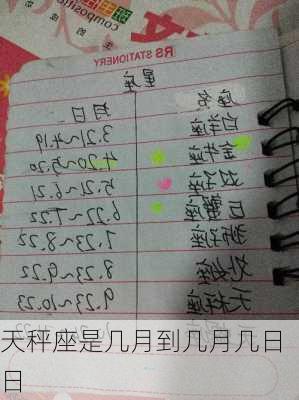 compositio
RS STATIONERY
星座
3.21~4.19 白羊座
4.20~5.20 金牛座
5.21~6.21 双子座
6.22~7.22 巨蟹座
7.23~8.22 狮子座
8.23~9.22 处女座
9.23~10.23 天秤座
天秤座是几月到几月几日
日